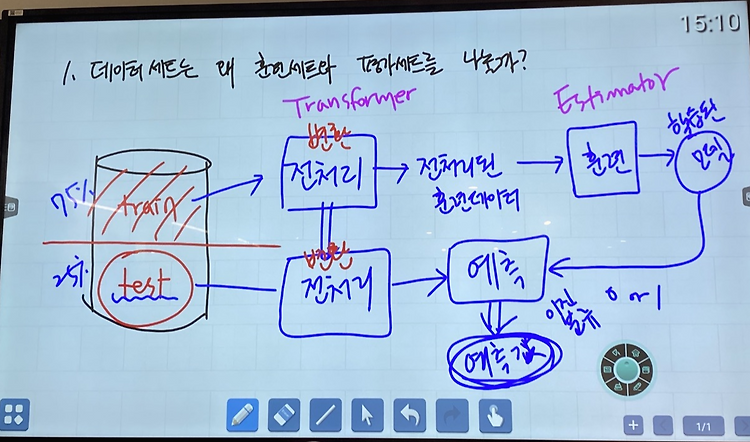 15:10
1. 데이터세트는 왜 훈련세트와 평가세트를 나눌까?
Transformer
Estimator
변환
전처리
전처리된
훈련데이터
훈련
학습된
모델
75%
train
25%
test
변환
전처리
예측
이진
분류
0 or 1
예측값
1/1